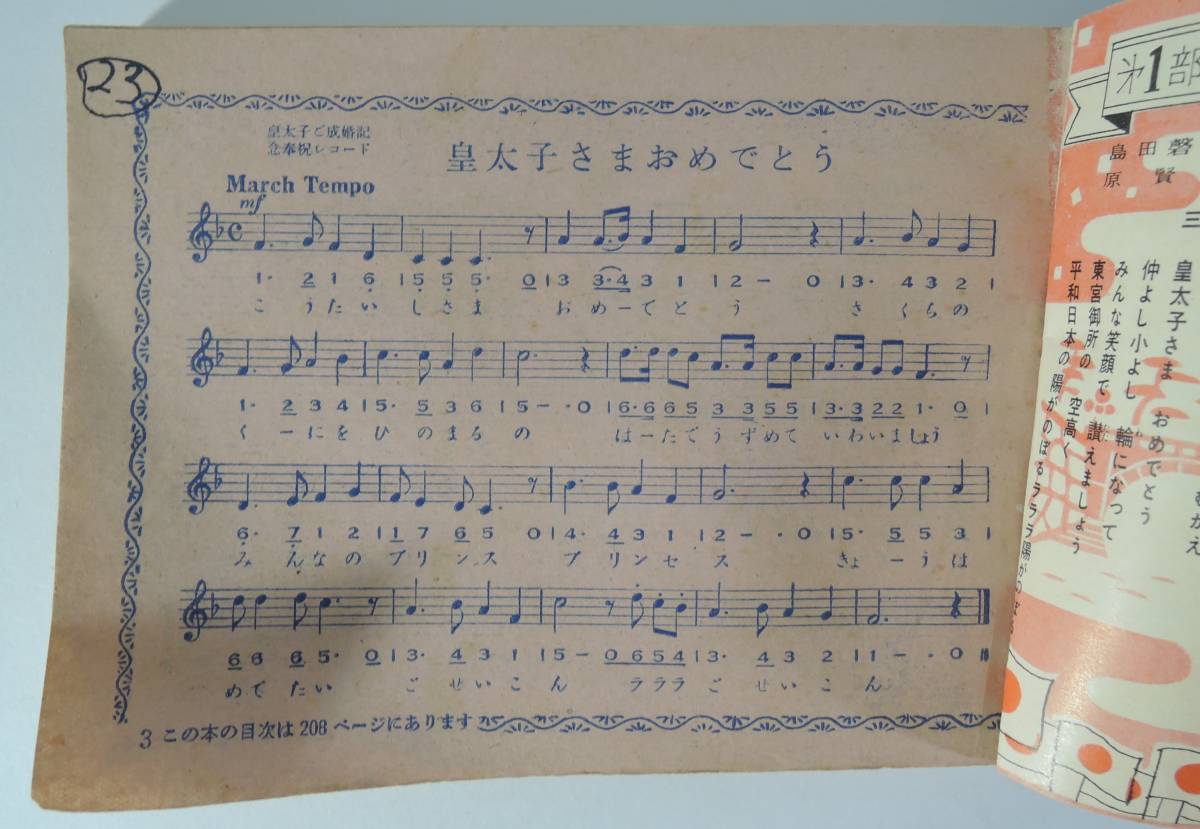 23
皇太子ご成婚記
念奉祝レコード
皇太子さまおめでとう
March Tempo
mf
1· 2 1 6 | 5 5 5· 0 | 3 3·4 3 1 | 2 − 0 | 3· 4 3 2 |
こうたい しさま おめーでとう さくらの
1· 2 3 4 | 5· 5 3 6 | 5 − · 0 | 6·6 6 5 3 3 5 5 | 3·3 2 2 1· 0 |
くーにをひのまるの はーたでうずめて いわいましょう
6· 7 1 2 | 1 7 6 5 0 | 4· 4 3 1 | 2 − · 0 | 5· 5 5 3 |
みんなのプリンス プリンセス きょーうは
6 6 6 5· 0 | 3· 4 3 1 | 5 − 0 6 5 4 | 3· 4 3 2 | 1 − · 0 ‖
めでたい ごせいこん ラララ ごせいこん
3 この本の目次は208ページにあります
第1部
島田磬
原賢
三
皇太子さま おめでとう
仲よし小よし 輪になって
みんな笑顔で 讃えましょう
東宮御所の 空高く
平和日本の 陽がのぼるラララ陽がのぼる